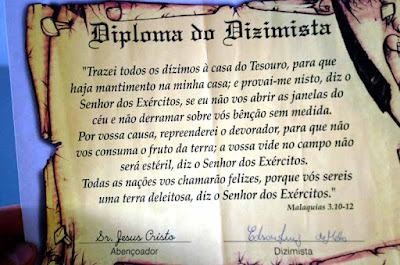 Diploma do Dizimista
"Trazei todos os dízimos à casa do Tesouro, para que
haja mantimento na minha casa; e provai-me nisto, diz o
Senhor dos Exércitos, se eu não vos abrir as janelas do
céu e não derramar sobre vós bênção sem medida.
Por vossa causa, repreenderei o devorador, para que não
vos consuma o fruto da terra; a vossa vide no campo não
será estéril, diz o Senhor dos Exércitos.
Todas as nações vos chamarão felizes, porque vós sereis
uma terra deleitosa, diz o Senhor dos Exércitos."
Malaquias 3.10-12
Sr. Jesus Cristo
Abençoador
Edson Luiz de Melo
Dizimista